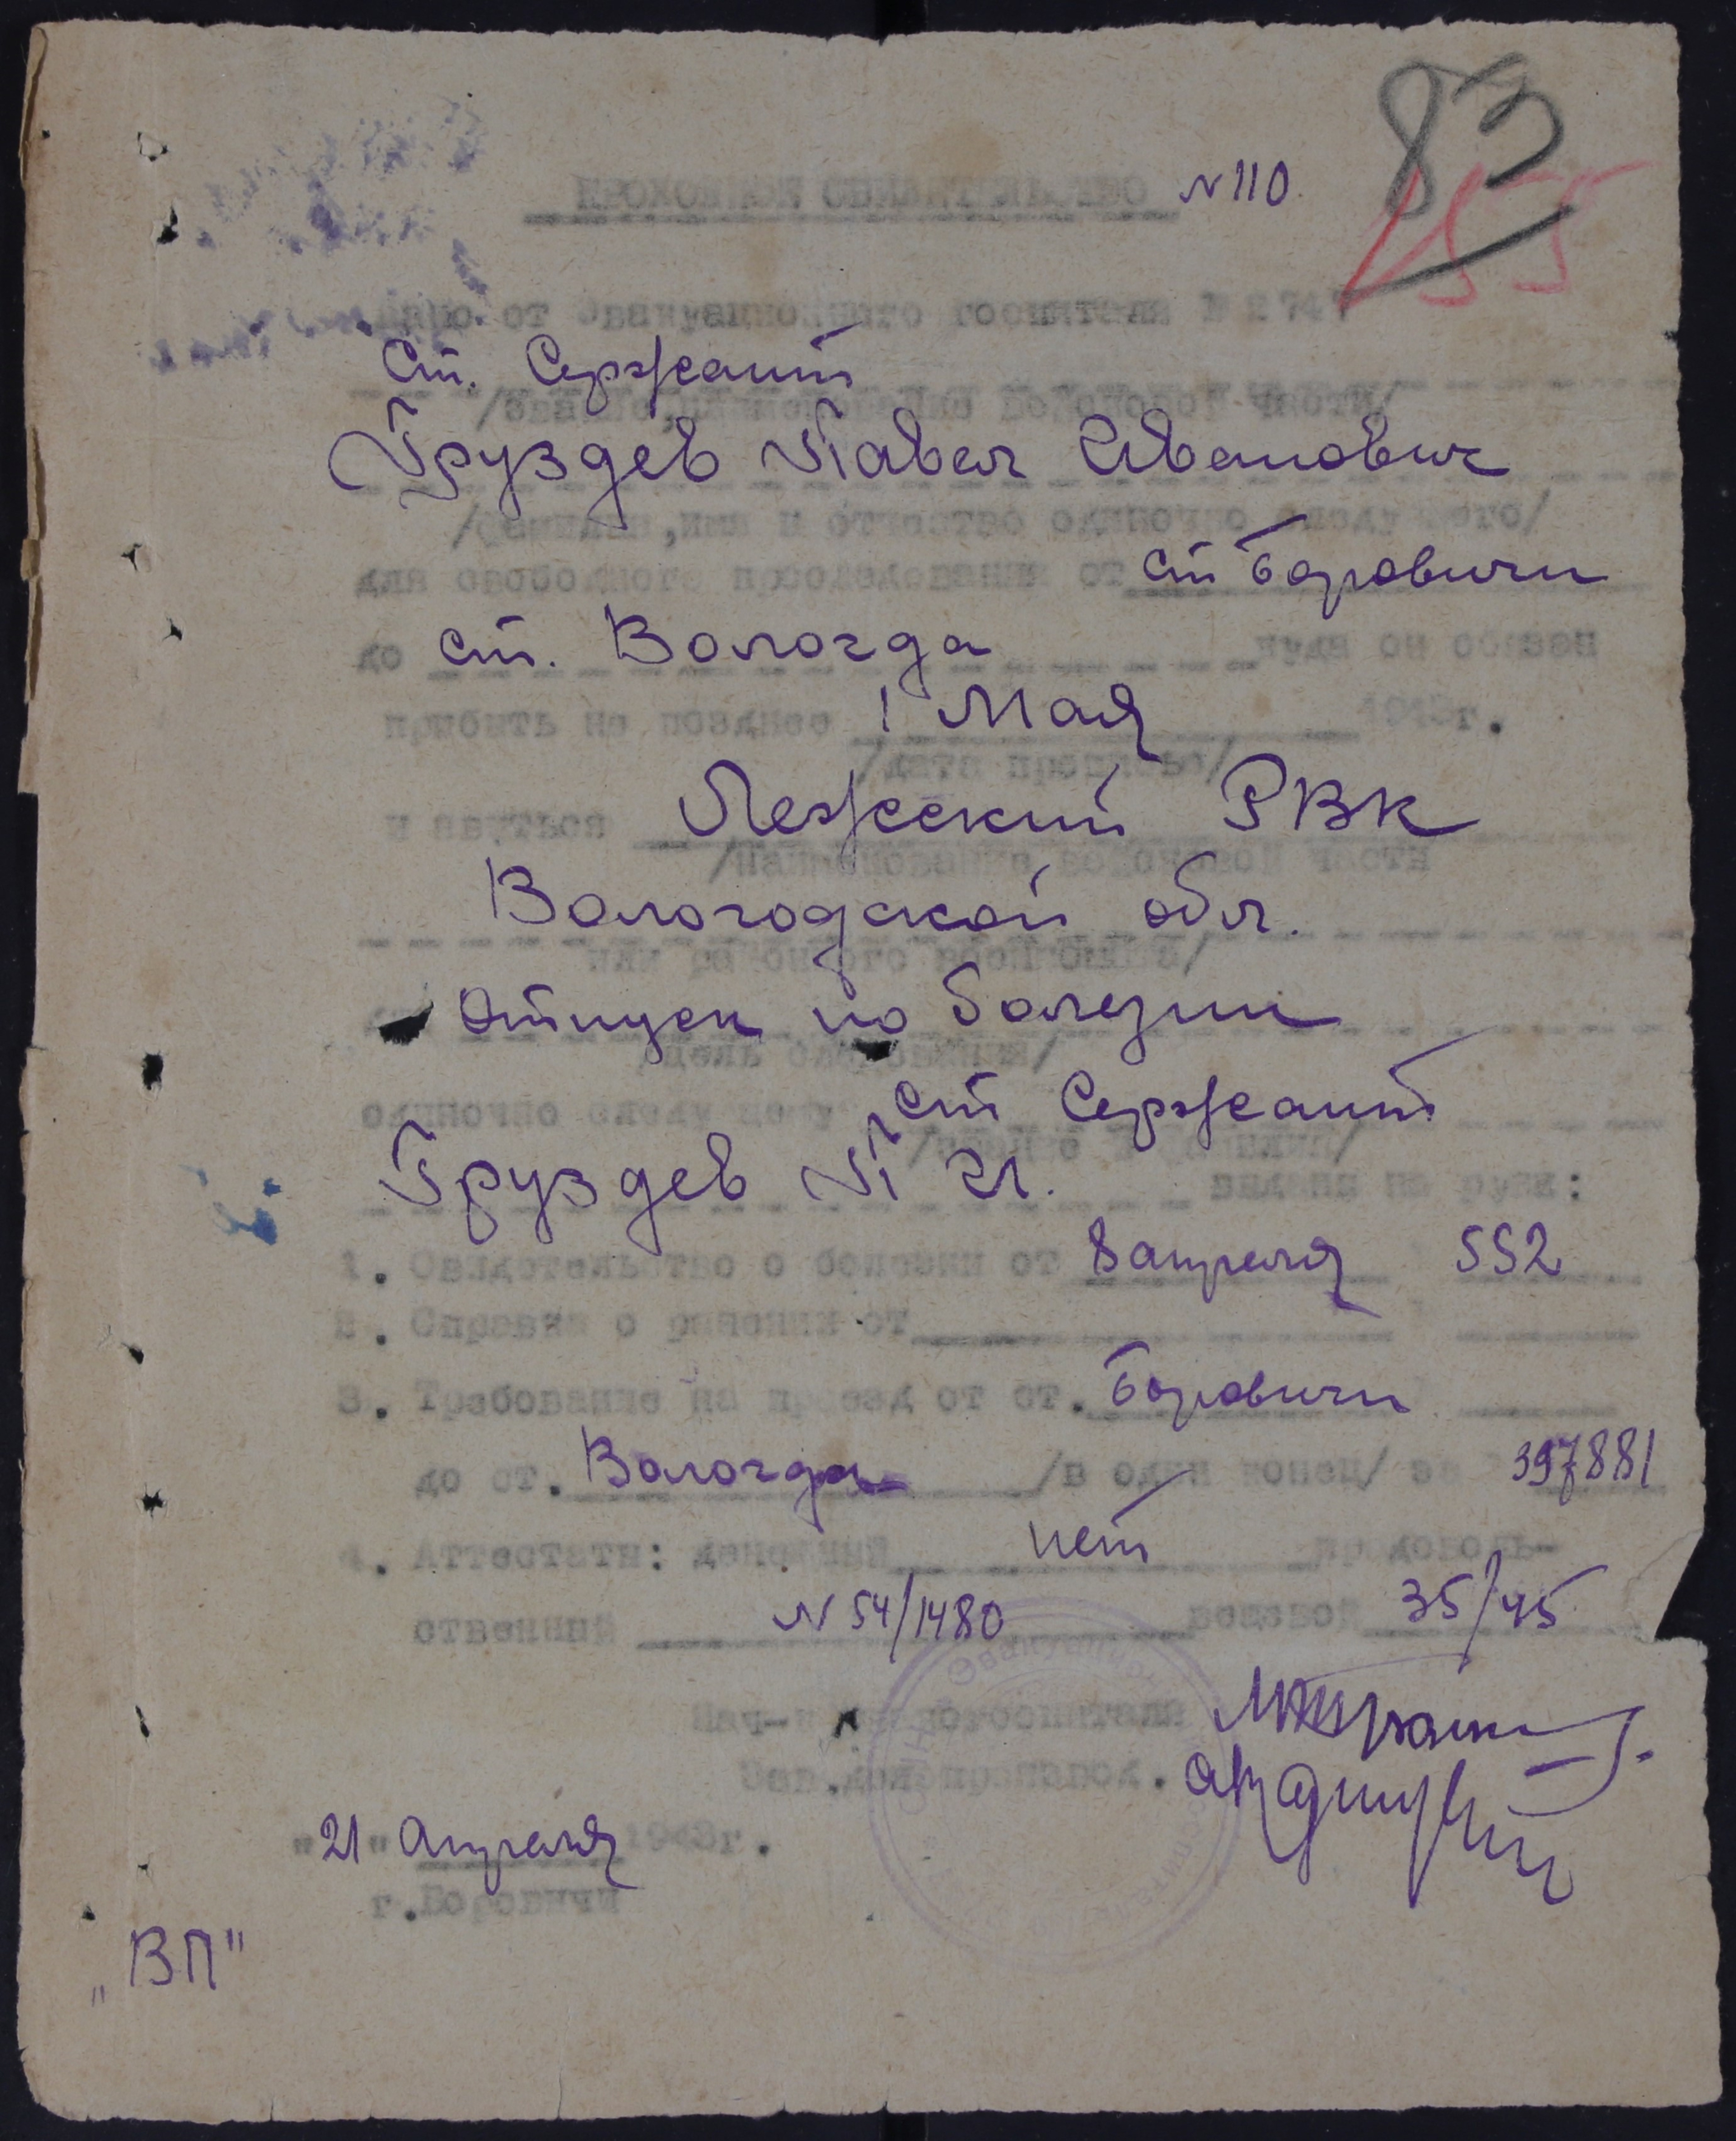 83
ПРОХОДНОЕ СВИДЕТЕЛЬСТВО N 110.
Дано от Эвакуационного госпиталя №
Ст. Сержант
/звание, наименование войсковой части/
Груздев Павел Иванович
/фамилия, имя и отчество одиночно следующего/
для свободного проследования от ст Боровичи
до ст. Вологда куда он обязан
прибыть не позднее 1 Мая 1943г.
/дата прописью/
и явуться Лежский РВК
/Наименование войсковой части
Вологодской обл.
или районного военкомата/
Отпуск по болезни
/цель следования/
одиночно следующему ст Сержант
/звание и фамилия/
Груздев П И. выданы на руки:
1. Свидетельство о болезни от 8 апреля 552
2. Справка о ранении от
3. Требование на проезд от ст. Боровичи
до ст. Вологда /в один конец/ за 397881
4. Аттестаты: денежный нет продоволь-
ственний N 54/1480 вещевой 35/45
Нач-к эвакогоспиталя
Зав. делопроизвод.
"21" Апреля 1943г.
г. Боровичи
"ВП"